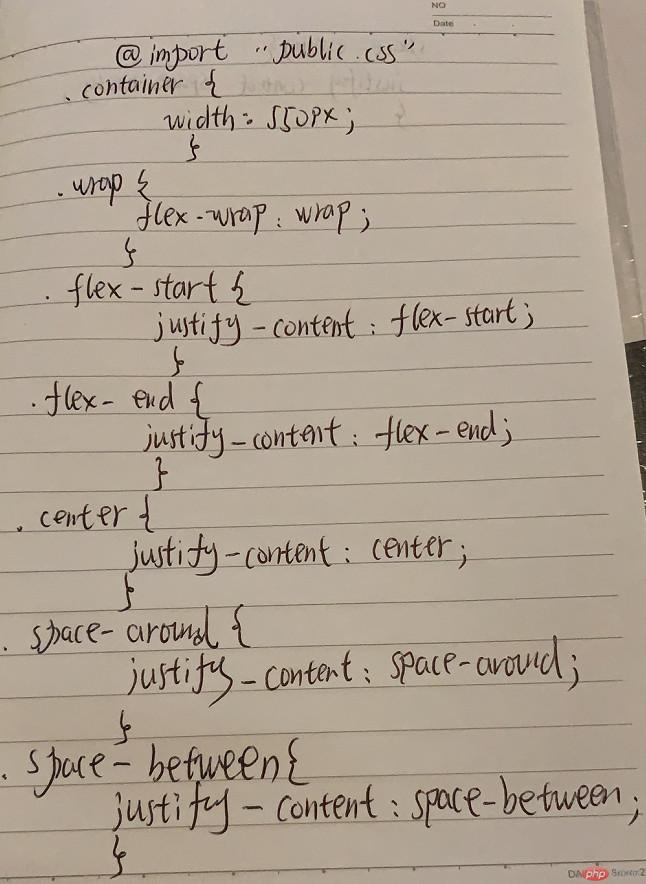 NO
Date
@import "public.css"
.container {
width: 550px;
}
.wrap {
flex-wrap: wrap;
}
.flex-start {
justify-content: flex-start;
}
.flex-end {
justify-content: flex-end;
}
.center {
justify-content: center;
}
.space-around {
justify-content: space-around;
}
.space-between{
justify-content: space-between;
}
php